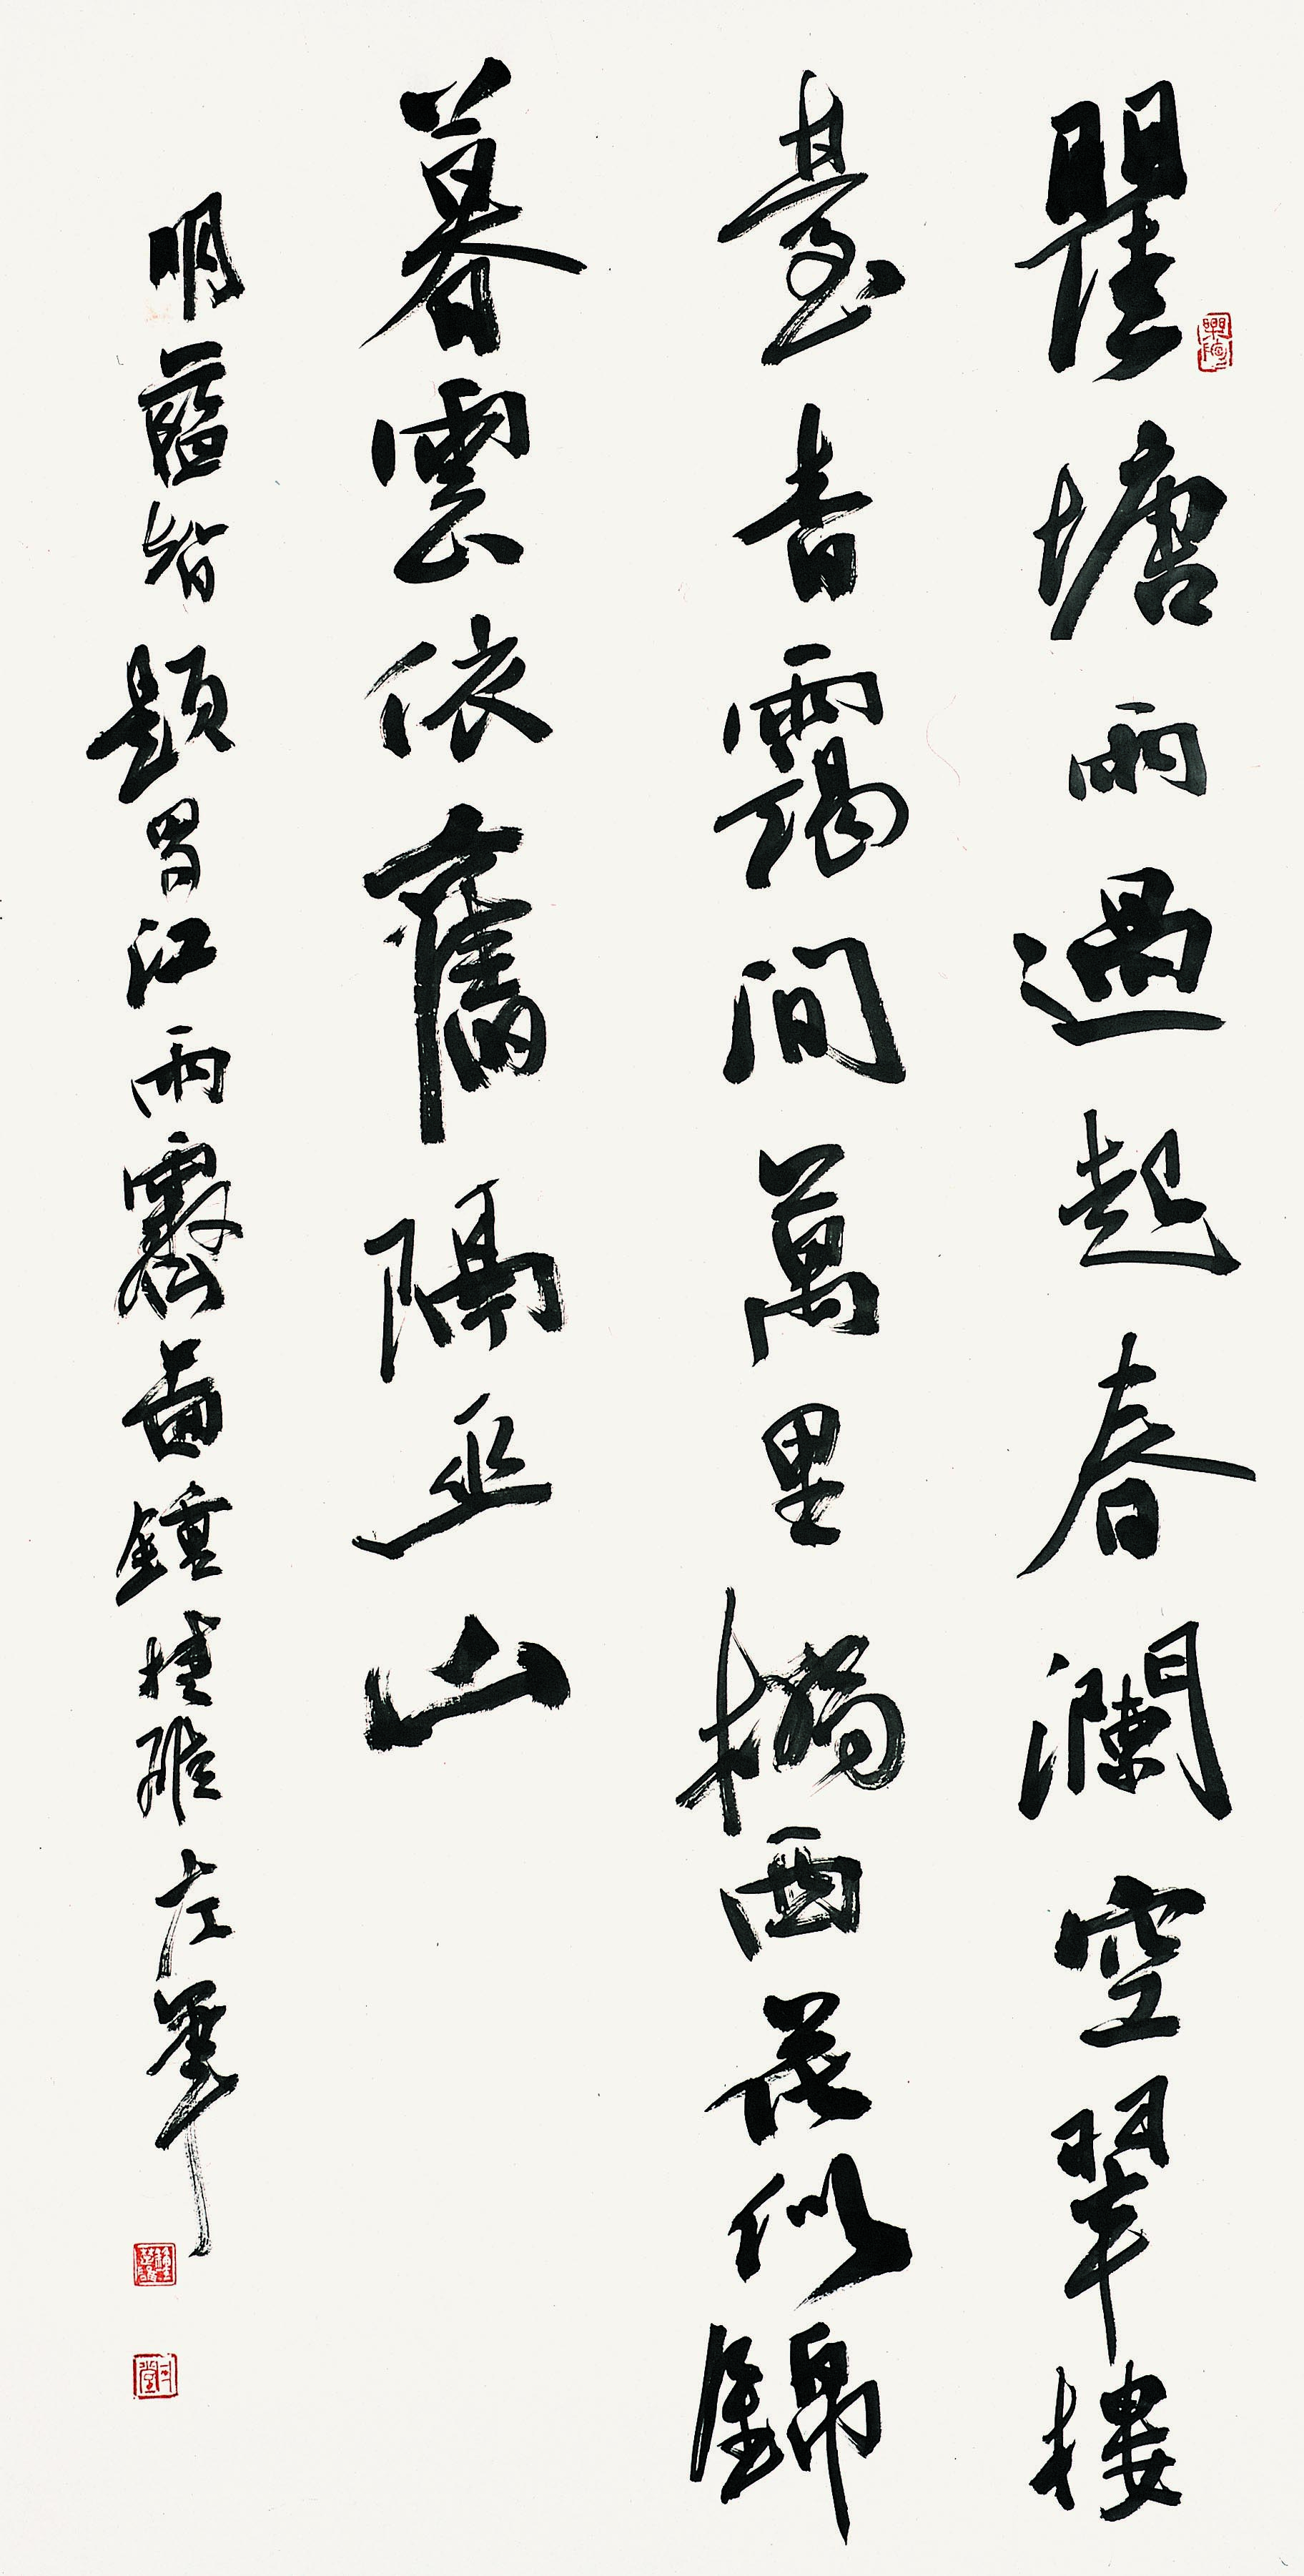 瞿塘雨過起春瀾空翠樓
臺香靄間萬里橋西花似錦
暮雲依舊隔巫山
明藍智題蜀江雨霽圖鍾 左筆